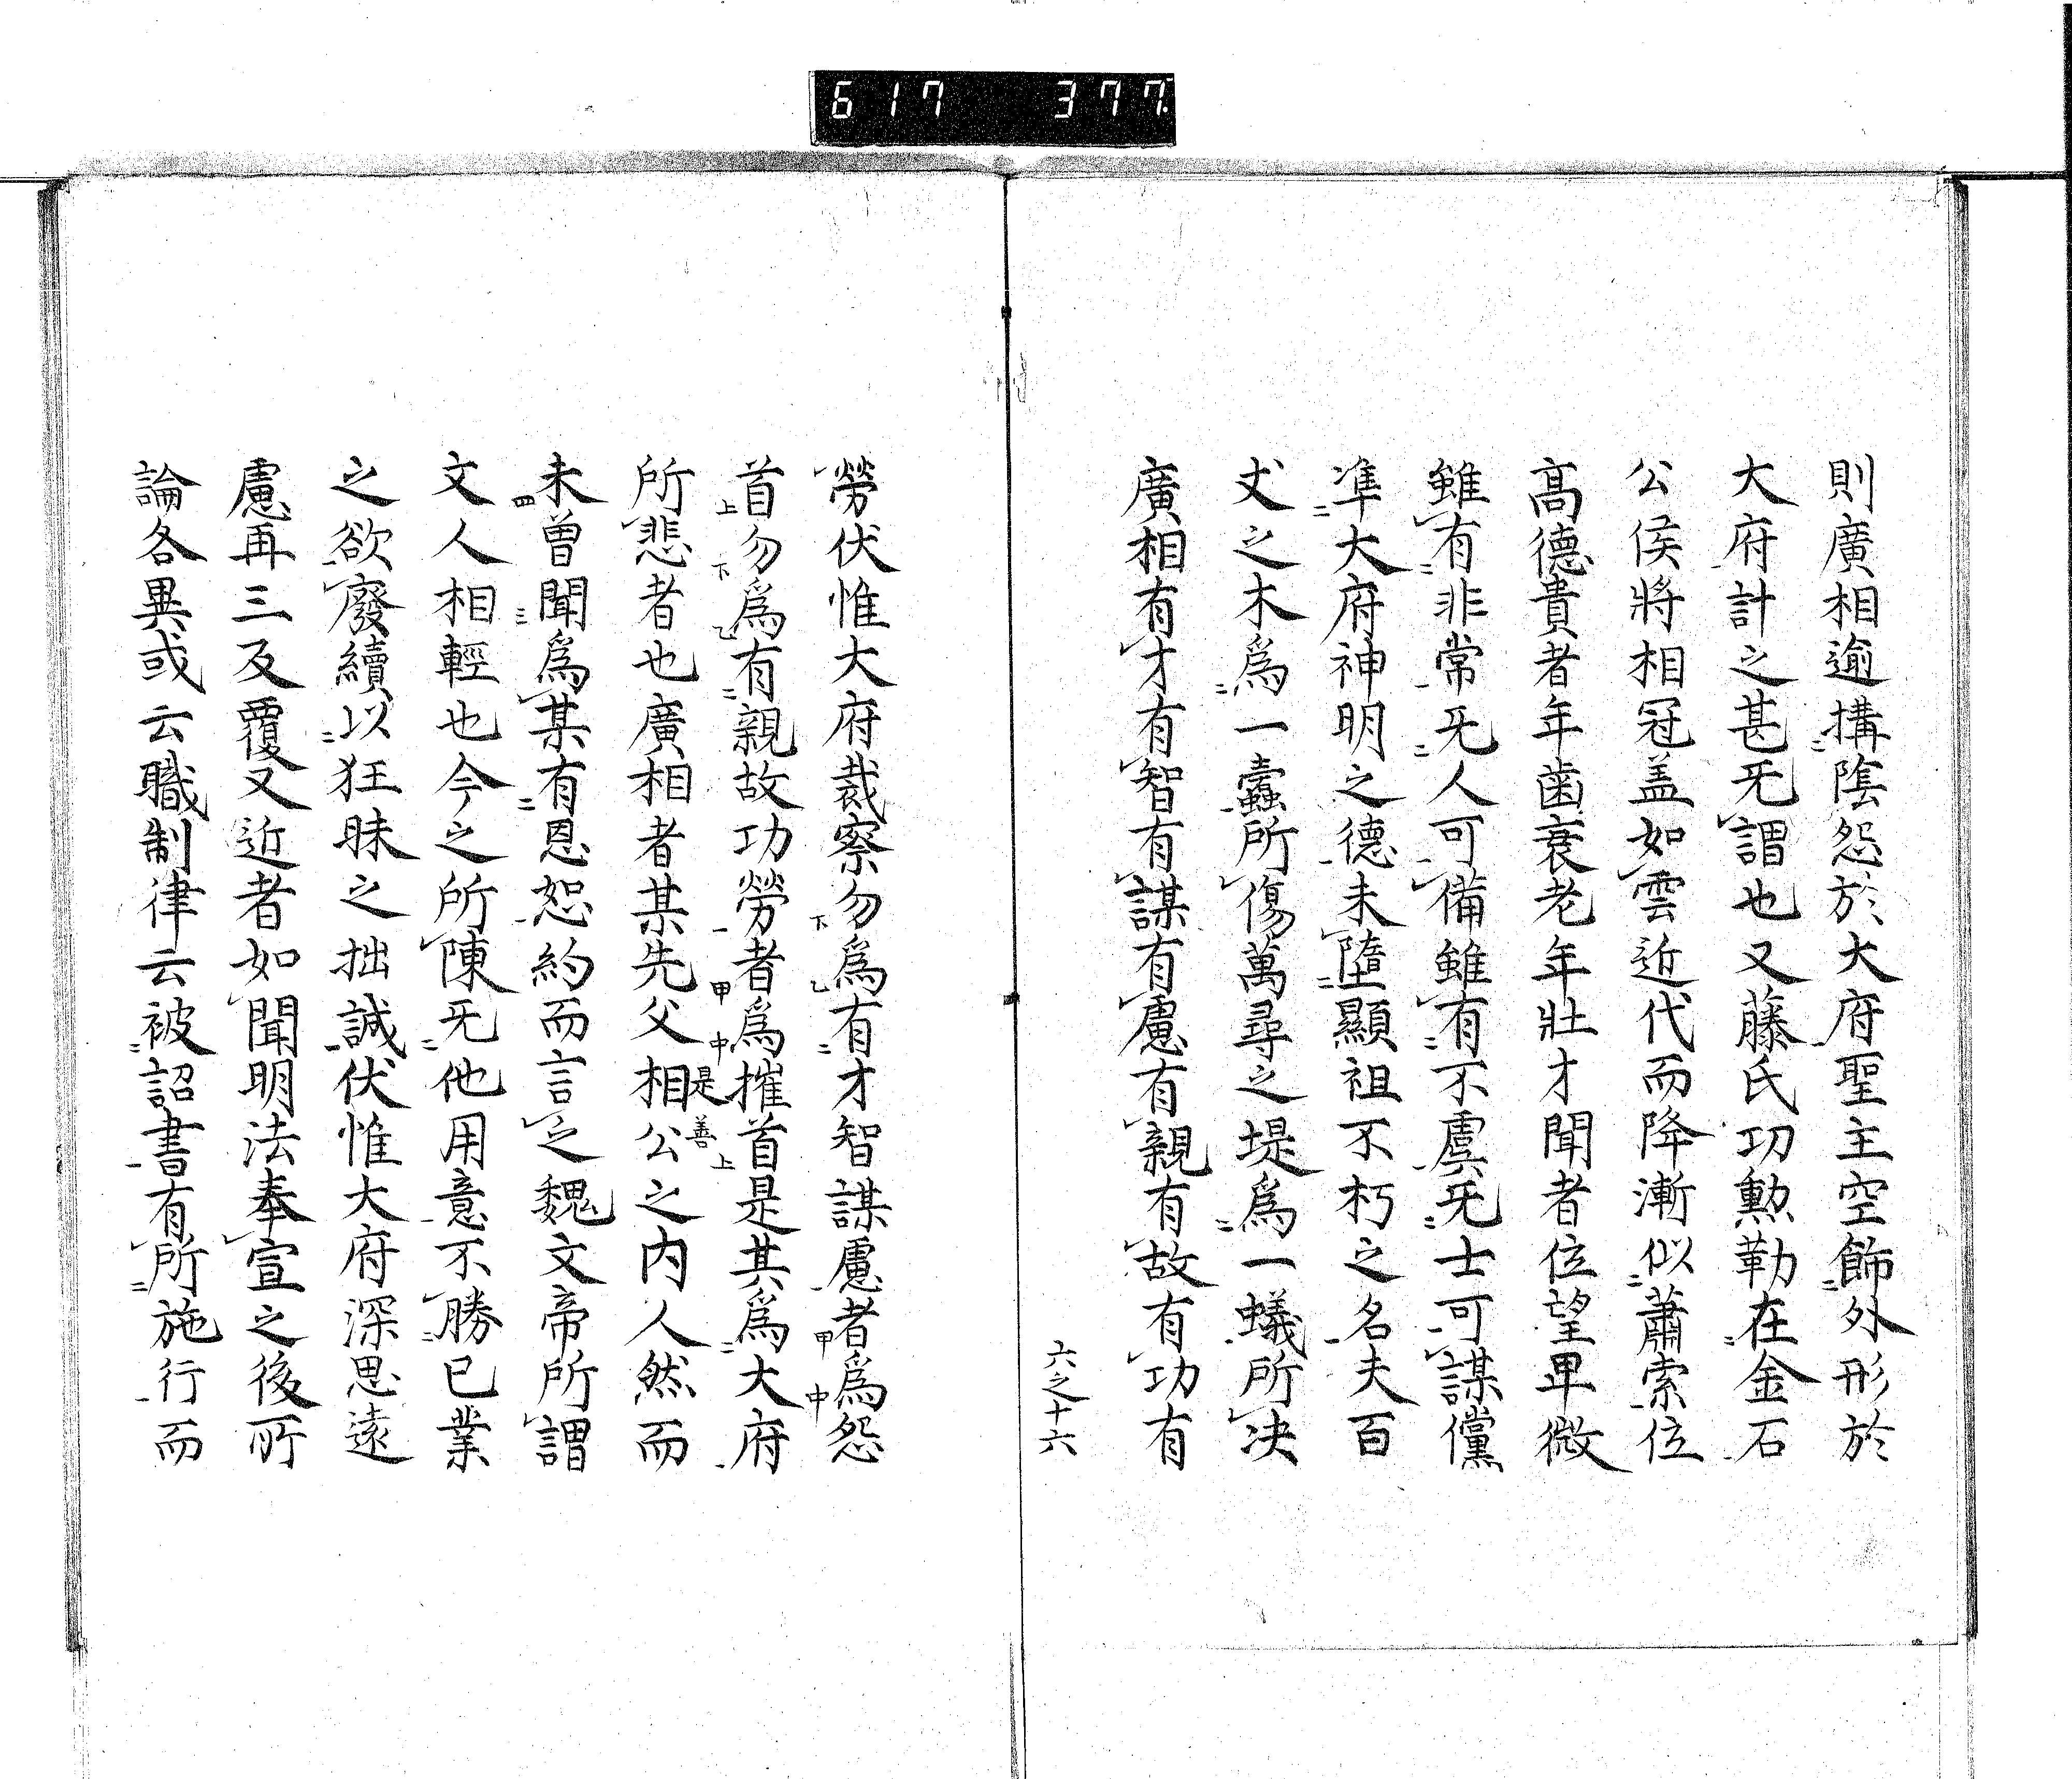 617 377
則廣相逾搆陰怨於大府聖主空飾外形於
大府計之甚旡謂也又藤氏功勲勒在金石
公侯將相冠盖如雲近代而降漸似蕭索位
高德貴者年歯衰老年壯才聞者位望卑微
雖有非常旡人可備雖有不虞旡士可謀儻
準大府神明之德未墮顯祖不朽之名夫百
丈之木爲一蠹所傷萬尋之堤爲一蟻所决
廣相有才有智有謀有慮有親有故有功有
六之十六
勞伏惟大府裁察勿爲有才智謀慮者爲怨
首勿爲有親故功勞者爲摧首是其爲大府
所悲者也廣相者某先父相公之内人然而
是善
未曽聞爲某有恩恕約而言之魏文帝所謂
文人相輕也今之所陳旡他用意不勝已業
之欲廢續以狂昧之拙誠伏惟大府深思遠
慮再三及覆又近者如聞明法奉宣之後所
論各異或云職制律云被詔書有所施行而